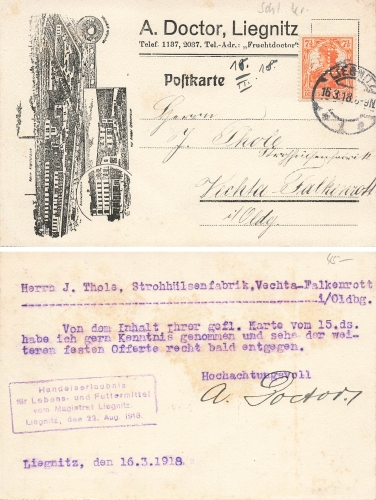 A. Doctor, Liegnitz
Telef. 1137, 2037. Tel.-Adr.: „Fruchtdoctor“
Postkarte
18. III. 18.
7½ 7½
LIEGNITZ
16.3.18. 8-9N.
Herrn
J. Thole
Strohhülsenfabrik
Vechta-Falkenrott
i/Oldg.
45—
Herrn J. Thole, Strohhülsenfabrik, Vechta-Falkenrott
i/Oldbg.
Von dem Inhalt Ihrer gefl. Karte vom 15.ds.
habe ich gern Kenntnis genommen und sehe der wei-
teren festen Offerte recht bald entgegen.
Hochachtungsvoll
A. Doctor.
Handelserlaubnis
für Lebens- und Futtermittel
vom Magistrat Liegnitz.
Liegnitz, den 22. Aug. 1916.
Liegnitz, den 16.3.1918